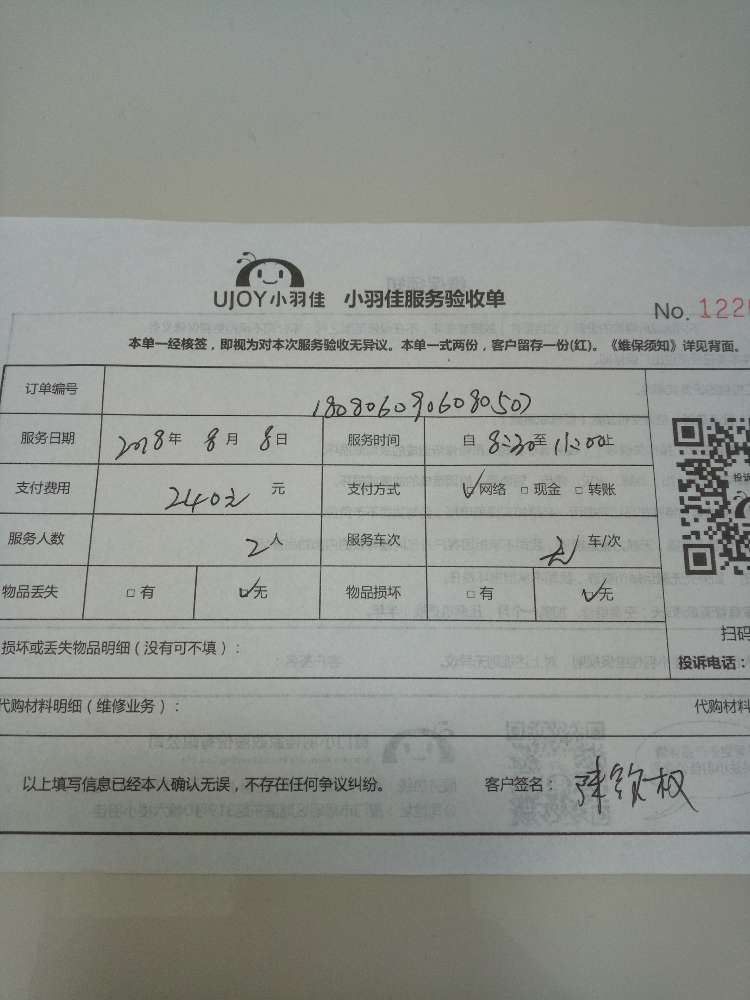 UJOY小羽佳 小羽佳服务验收单
No. 122
本单一经核签，即视为对本次服务验收无异议。本单一式两份，客户留存一份(红)。《维保须知》详见背面。
订单编号 180806090608050
服务日期 2018年 8月 8日 服务时间 自 8:30至 11:00止
支付费用 240元 元 支付方式 ☑网络 □现金 □转账
服务人数 2人 服务车次 无 车/次
物品丢失 □有 ☑无 物品损坏 □有 ☑无
损坏或丢失物品明细（没有可不填）：
扫码
投诉电话：
代购材料明细（维修业务）：
代购材料
以上填写信息已经本人确认无误，不存在任何争议纠纷。 客户签名：